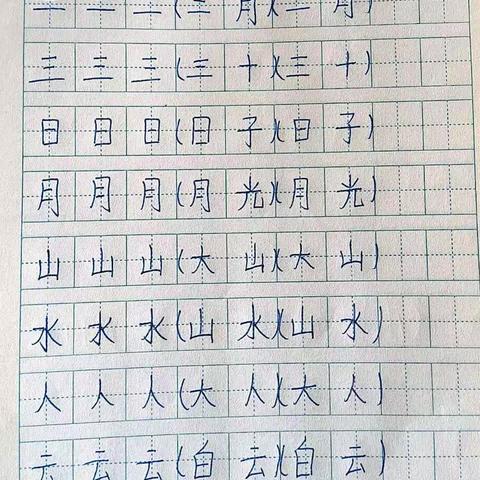 二 二 二 (二 月)(二 月)
三 三 三 (三 十)(三 十)
日 日 日 (日 子)(日 子)
月 月 月 (月 光)(月 光)
山 山 山 (大 山)(大 山)
水 水 水 (山 水)(山 水)
人 人 人 (大 人)(大 人)
云 云 云 (白 云)(白 云)